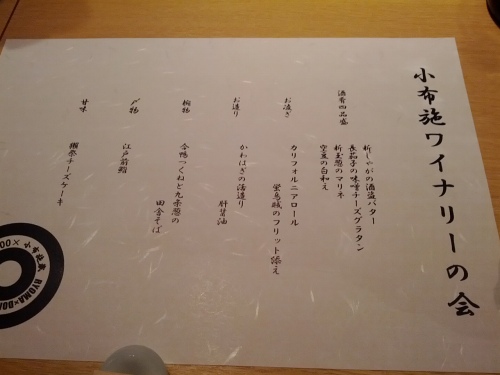 小布施ワイナリーの会
酒肴四品盛
新じゃがの酒盗バター
長茄子の味噌チーズグラタン
新玉葱のマリネ
空豆の白和え
お凌ぎ
カリフォルニアロール
蛍烏賊のフリット添え
お造り
かわはぎの薄造り
肝醤油
椀物
合鴨つくねと九条葱の
田舎そば
〆物
江戸前鮨
甘味
獺祭チーズケーキ
RYOMA×DOM